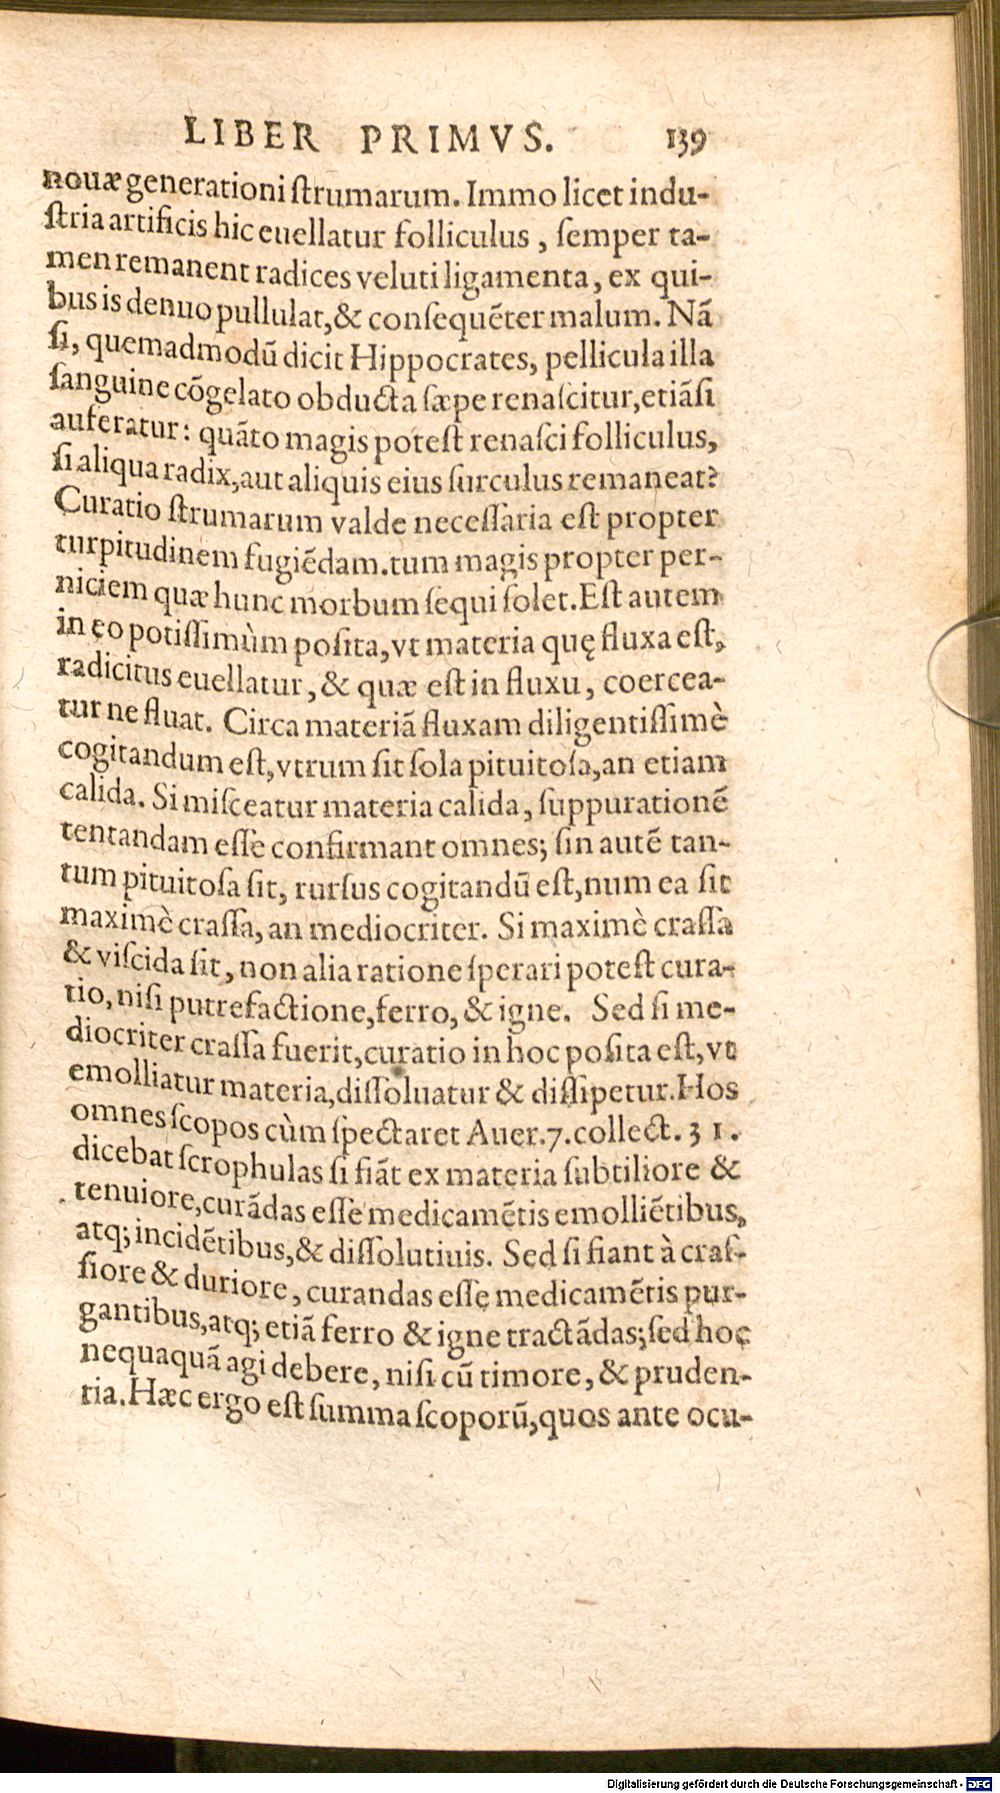 LIBER PRIMVS. 139
nouæ generationi ſtrumarum. Immo licet indu-
ſtria artificis hic euellatur folliculus, ſemper ta-
men remanent radices veluti ligamenta, ex qui-
bus is denuo pullulat, & conſequēter malum. Nā
ſi, quemadmodū dicit Hippocrates, pellicula illa
ſanguine cōgelato obducta ſæpe renaſcitur, etiāſi
auferatur: quāto magis poteſt renaſci folliculus,
ſi aliqua radix, aut aliquis eius ſurculus remaneat?
Curatio ſtrumarum valde neceſſaria eſt propter
turpitudinem fugiēdam. tum magis propter per-
niciem quæ hunc morbum ſequi ſolet. Eſt autem
in eo potiſſimùm poſita, vt materia quę fluxa eſt,
radicitus euellatur, & quæ eſt in fluxu, coercea-
tur ne fluat. Circa materiā fluxam diligentiſſimè
cogitandum eſt, vtrum ſit ſola pituitoſa, an etiam
calida. Si miſceatur materia calida, ſuppurationē
tentandam eſſe confirmant omnes; ſin autē tan-
tum pituitoſa ſit, rurſus cogitandū eſt, num ea ſit
maximè craſſa, an mediocriter. Si maximè craſſa
& viſcida ſit, non alia ratione ſperari poteſt cura-
tio, niſi putrefactione, ferro, & igne. Sed ſi me-
diocriter craſſa fuerit, curatio in hoc poſita eſt, vt
emolliatur materia, diſſoluatur & diſſipetur. Hos
omnes ſcopos cùm ſpectaret Auer. 7. collect. 31.
dicebat ſcrophulas ſi fiāt ex materia ſubtiliore &
tenuiore, curādas eſſe medicamētis emolliētibus,
atq; incidētibus, & diſſolutiuis. Sed ſi fiant à craſ-
ſiore & duriore, curandas eſſe medicamētis pur-
gantibus, atq; etiā ferro & igne tractādas; ſed hoc
nequaquā agi debere, niſi cū timore, & pruden-
tia. Hæc ergo eſt ſumma ſcoporū, quos ante ocu-
Digitalisierung gefördert durch die Deutsche Forschungsgemeinschaft - DFG